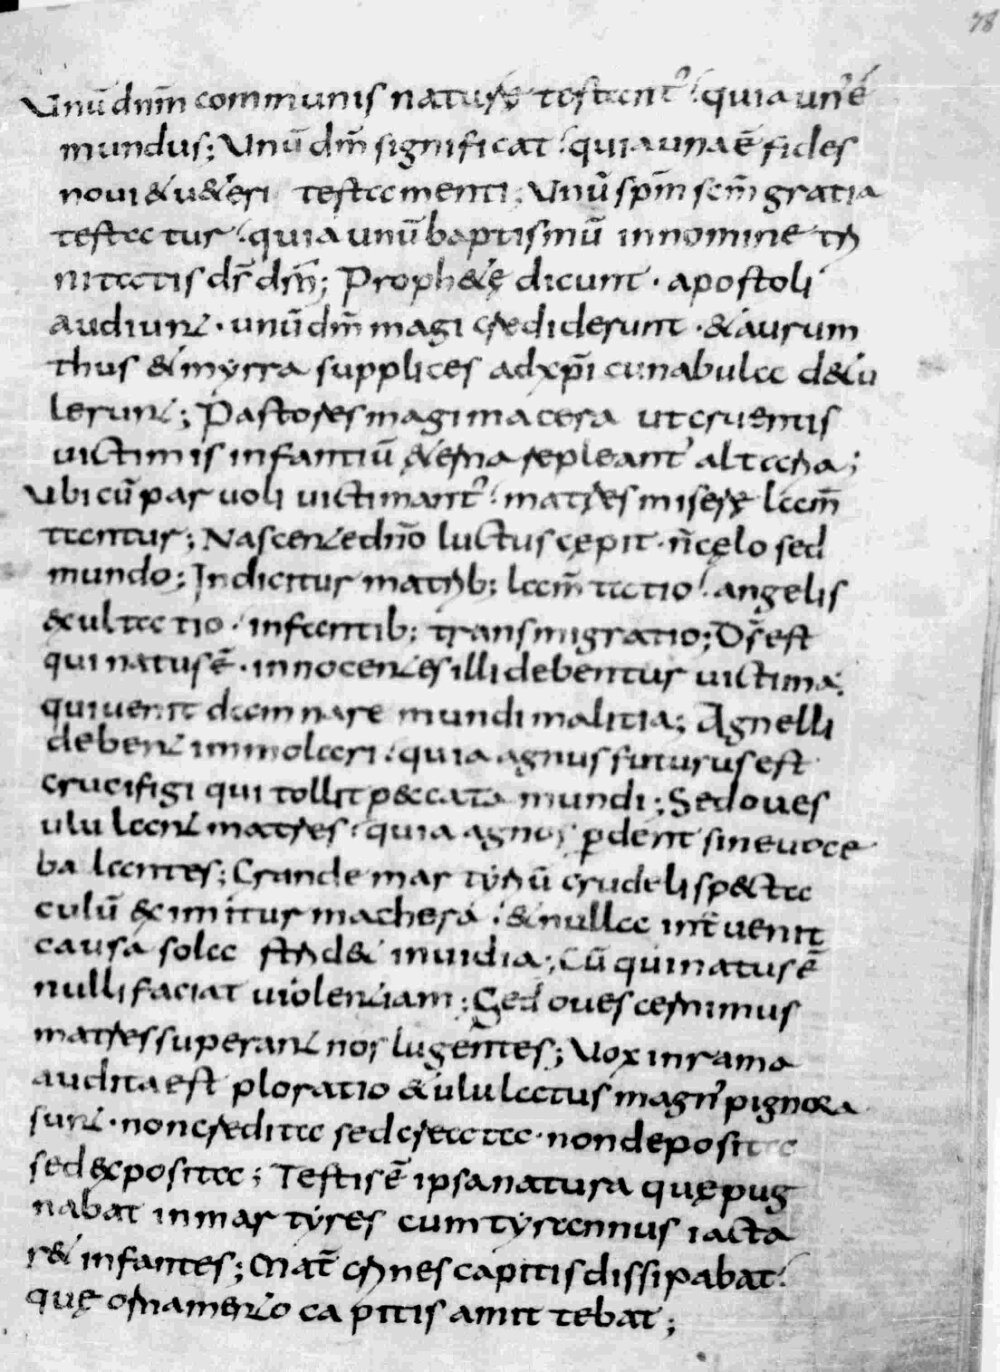 78
Unū dn̄m communis naturę testant᷑ quia un᷑ ē
mundus; Unū dn̄m significat quia una ē fides
noui & u&eri testamenti; Unū sp̄m sc̄m gratia
testatur quia unū baptismū in nomine tri
nitatis dr̄ dn̄i; Proph&ę dicunt · apostoli
audiunt · unū dn̄m magi crediderunt · & aurum
thus & myrra supplices ad xp̄i cunabula d&u
lerunt; Pastores magi macera ut cruentis
uictimis infantiū &erna repleant᷑ altaria;
Ubi cū paruoli uictimant᷑ matres miserę lam̄
tantur; Nascente dn̄o luctus cępit · n̄ cęlo sed
mundo; Indicitur matrib; lam̄tatio angelis
exultatio · infantib; transmigratio; Ds̄ est
qui natus ē · innocentes illi debentur uictima
qui uenit damnare mundi malitia; Agnelli
debent immolari quia agnus futurus est
crucifigi qui tollit peccata mundi; Sed oues
ululant matres quia agnos p̱dent sine uoce
balantes; Grande martyriū crudeli specta
culū eximitur machera & nulla int̄uenit
causa sola strid& inuidia; Cū qui natus ē
nulli faciat uiolentiam; Sed oues cernimus
matres superant nos lugentes; Uox in rama
audita est ploratio & ululatus magn᷑ pignora
sunt · non credita sed creata · non deposita
sed exposita; Testis ē ipsa natura quę pug
nabat in martyres cum tyrannus iacta
r& infantes; Mat̄ crines capitis dissipabat
quę ornamento capitis amittebat;